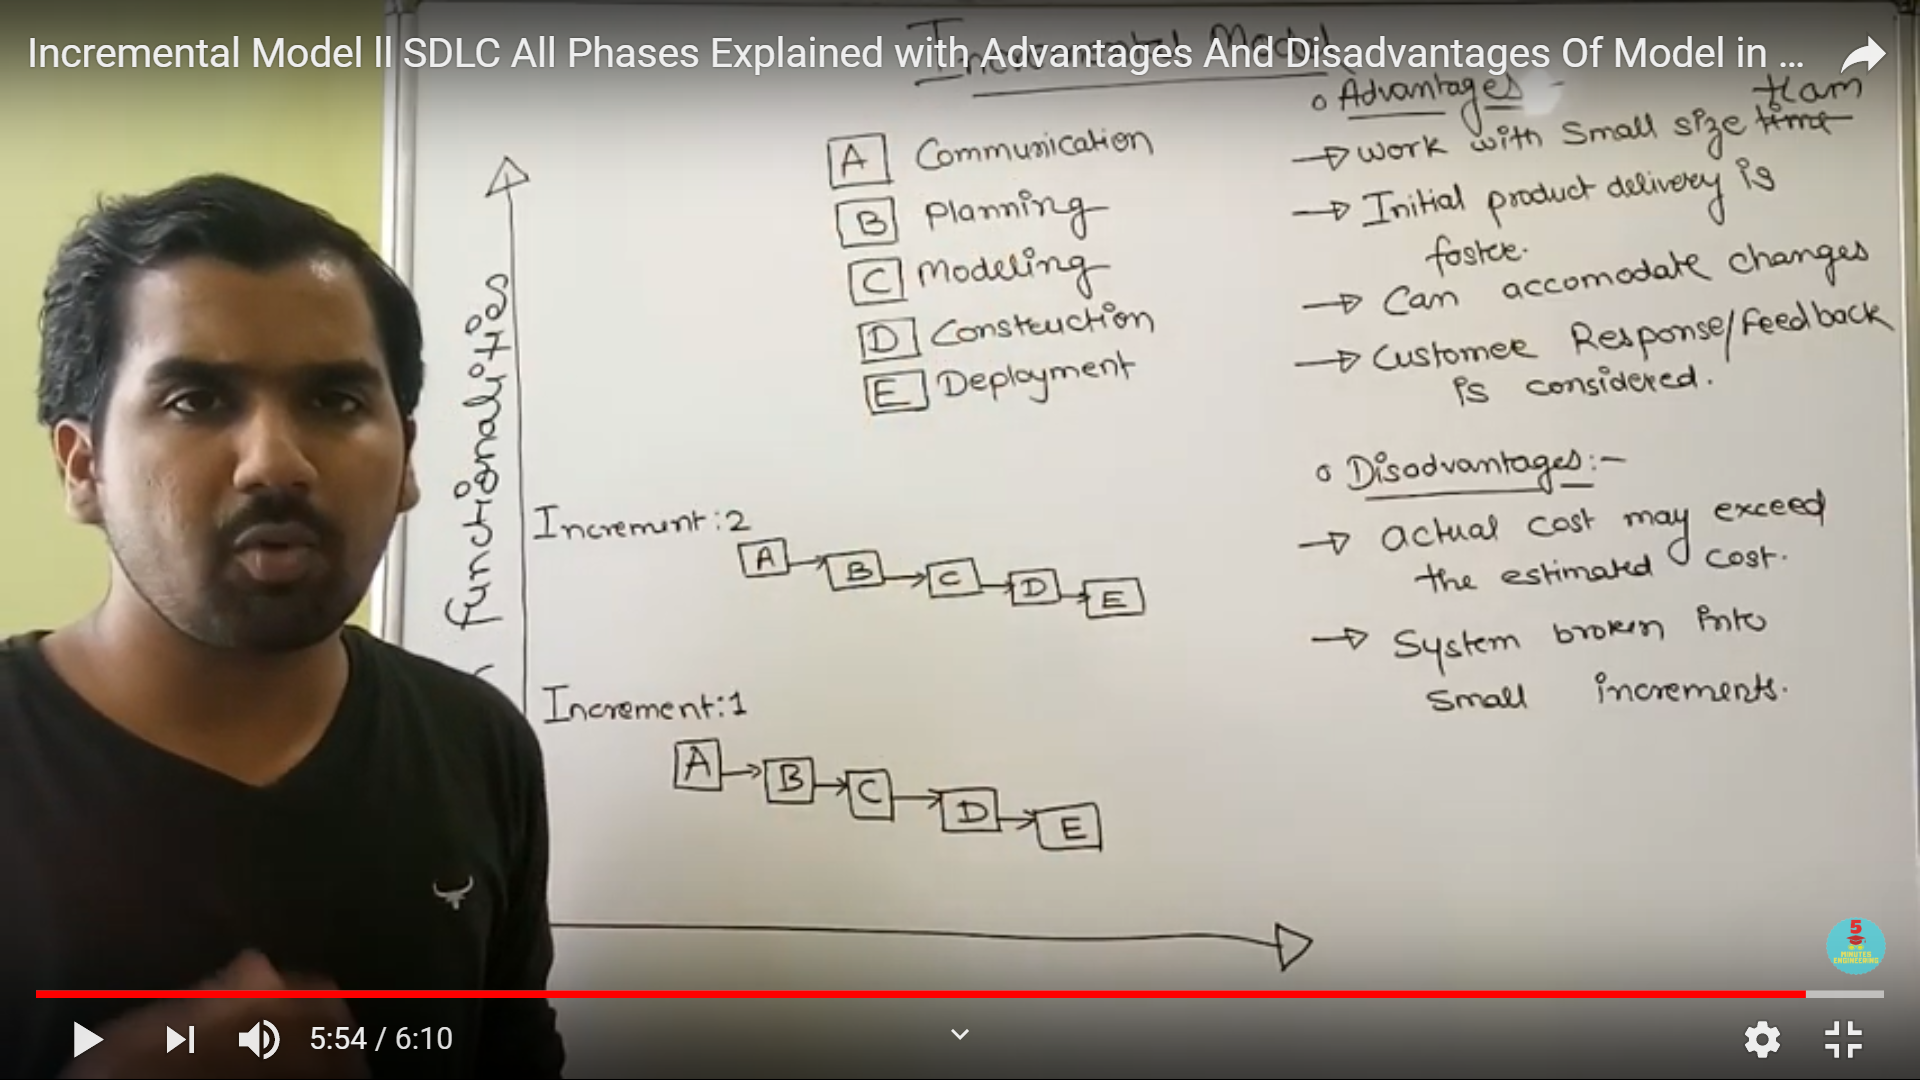 Incremental Model ll SDLC All Phases Explained with Advantages And Disadvantages Of Model in ...
Incremental Model
A Communication
B Planning
C Modeling
D Construction
E Deployment
functionalities
Increment:2
A B C D E
Increment:1
A B C D E
o Advantages:-
team
→ Work with Small size time
→ Initial product delivery is
faster.
→ Can accomodate changes
→ Customer Response/Feedback
is considered.
o Disadvantages:-
→ Actual cost may exceed
the estimated cost.
→ System broken into
Small increments.
5
MINUTES
ENGINEERING
5:54 / 6:10